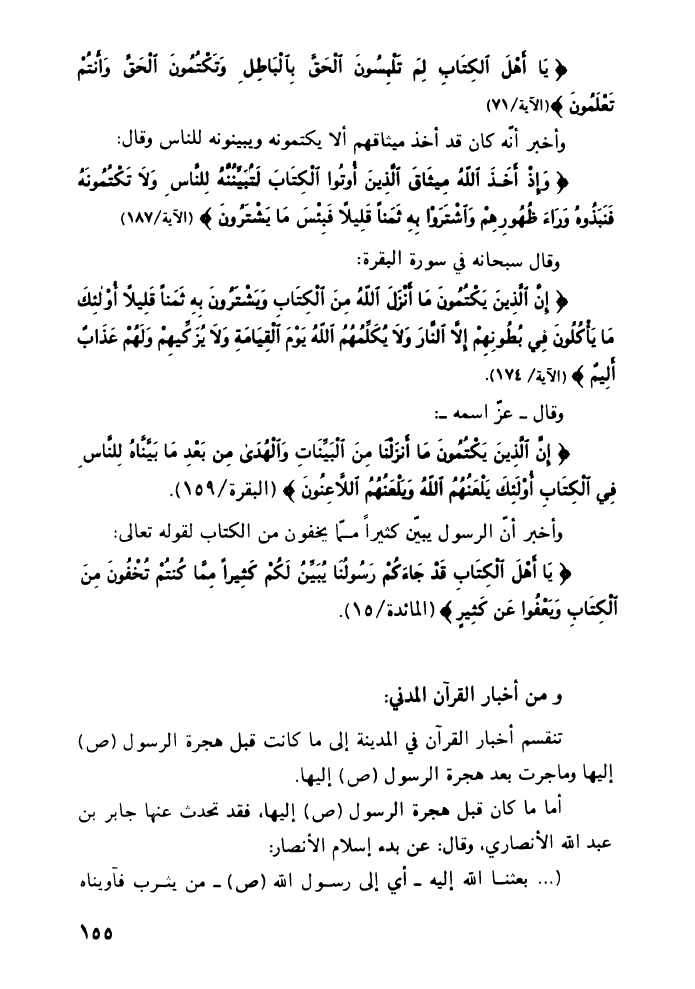 ﴿ يَا أَهْلَ ٱلكِتَابِ لِمَ تَلْبِسُونَ ٱلْحَقَّ بِٱلْبَاطِلِ وَتَكْتُمُونَ ٱلْحَقَّ وَأَنتُمْ
تَعْلَمُونَ ﴾ (الآية/٧١)
وأخبر أنّه كان قد أخذ ميثاقهم ألا يكتمونه ويبينونه للناس وقال:
﴿ وَإِذْ أَخَذَ ٱللهُ مِيثَاقَ ٱلَّذِينَ أُوتُوا ٱلْكِتَابَ لَتُبَيِّنُنَّهُ لِلنَّاسِ وَلَا تَكْتُمُونَهُ
فَنَبَذُوهُ وَرَاءَ ظُهُورِهِمْ وَٱشْتَرَوْا بِهِ ثَمَناً قَلِيلًا فَبِئْسَ مَا يَشْتَرُونَ ﴾ (الآية/١٨٧)
وقال سبحانه في سورة البقرة:
﴿ إِنَّ ٱلَّذِينَ يَكْتُمُونَ مَا أَنْزَلَ ٱللهُ مِنَ ٱلْكِتَابِ وَيَشْتَرُونَ بِهِ ثَمَناً قَلِيلًا أُوْلٰئِكَ
مَا يَأْكُلُونَ فِي بُطُونِهِمْ إِلَّا ٱلنَّارَ وَلَا يُكَلِّمُهُمُ ٱللهُ يَوْمَ ٱلْقِيَامَةِ وَلَا يُزَكِّيهِمْ وَلَهُمْ عَذَابٌ
أَلِيمٌ ﴾ (الآية/ ١٧٤).
وقال ـ عزّ اسمه ـ:
﴿ إِنَّ ٱلَّذِينَ يَكْتُمُونَ مَا أَنزَلْنَا مِنَ ٱلْبَيِّنَاتِ وَٱلْهُدَىٰ مِن بَعْدِ مَا بَيَّنَّاهُ لِلنَّاسِ
فِي ٱلْكِتَابِ أُوْلَئِكَ يَلْعَنُهُمُ ٱللهُ وَيَلْعَنُهُمُ ٱللاَّعِنُونَ ﴾ (البقرة/١٥٩).
وأخبر أنّ الرسول يبيّن كثيراً ممّا يخفون من الكتاب لقوله تعالى:
﴿ يَا أَهْلَ ٱلْكِتَابِ قَدْ جَاءَكُمْ رَسُولُنَا يُبَيِّنُ لَكُمْ كَثِيراً مِمَّا كُنتُمْ تُخْفُونَ مِنَ
ٱلْكِتَابِ وَيَعْفُوا عَن كَثِيرٍ ﴾ (المائدة/١٥).
و من أخبار القرآن المدني:
تنقسم أخبار القرآن في المدينة إلى ما كانت قبل هجرة الرسول (ص)
إليها وماجرت بعد هجرة الرسول (ص) إليها.
أما ما كان قبل هجرة الرسول (ص) إليها، فقد تحدث عنها جابر بن
عبد الله الأنصاري، وقال: عن بدء إسلام الأنصار:
(... بعثنا الله إليه ـ أي إلى رسول الله (ص) ـ من يثرب فآويناه
١٥٥